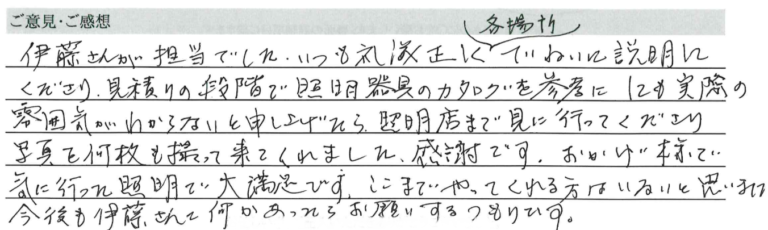 ご意見・ご感想
各場所
伊藤さんが担当でした。いつも礼儀正しく ていねいに説明に
くださり、見積りの段階で照明器具のカタログを参考に しても実際の
雰囲気がわからないと申し上げたら、照明店まで見に行ってくださり
写真を何枚も撮って来てくれました。感謝です。おかげ様で
気に行った照明で大満足です。ここまでやってくれる方はいないと思います
今後も伊藤さんに何かあったらお願いするつもりです。